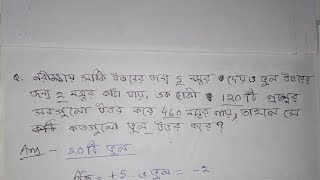 Q. পরীক্ষায় সঠিক উত্তরের জন্য 5 নম্বর দেয় ও ভুল উত্তরের
জন্য 2 নম্বর কাটা যায়, এক ছাত্রী 120টি প্রশ্নের
সবগুলো উত্তর করে 460 নম্বর পায়, তাহলে সে
কতগুলো ভুল উত্তর করে?
Ans - 20টি ভুল
= +5 .. ও ভুল = -2